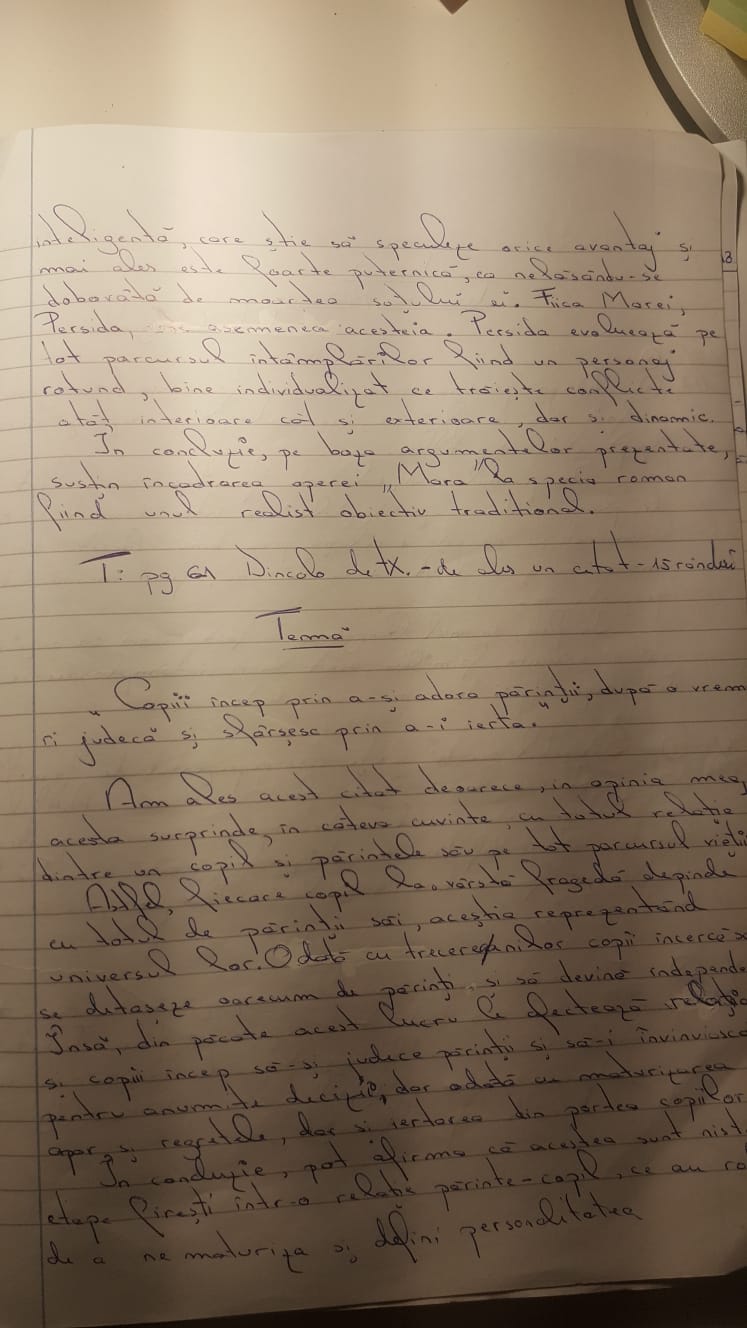 inteligentă, care știe să speculeze orice avantaj și
mai ales este foarte puternică, ea nelăsându-se
doborâtă de moartea soțului ei. Fiica Marei,
Persida, asemenea acesteia. Persida evoluează pe
tot parcursul întâmplărilor fiind un personaj
rotund, bine individualizat ce trăiește conflicte
atât interioare cât și exterioare, dar și dinamic.
În concluzie, pe baza argumentelor prezentate,
susțin încadrarea operei „Mara" la specia roman
fiind unul realist obiectiv tradițional.
T: pg 61 Dincolo de tx. - de ales un citat - 15 rânduri
Temă
„Copiii încep prin a-și adora părinții, după o vrem
îi judecă și sfârșesc prin a-i ierta."
Am ales acest citat deoarece, in opinia mea,
acesta surprinde, în câteva cuvinte, cu totul relație
dintre un copil și părintele său pe tot parcursul vieții
Astfel, fiecare copil la vârsta fragedă depinde
cu totul de părinții săi, aceștia reprezentând
universul lor. Odată cu trecerea anilor copii încercă
se detașeze oarecum de părinți și să devină independe
Însă, din păcate acest lucru le afectează relația
și copiii încep să-și judece părinții și să-i învinuiască
pentru anumite decizii, dar odată cu maturizarea
apar și regretele, dar și iertarea din partea copiilor
În concluzie, pot afirma că acestea sunt nişt
etape firești într-o relație părinte-copil, ce au ro
de a ne maturiza și defini personalitatea